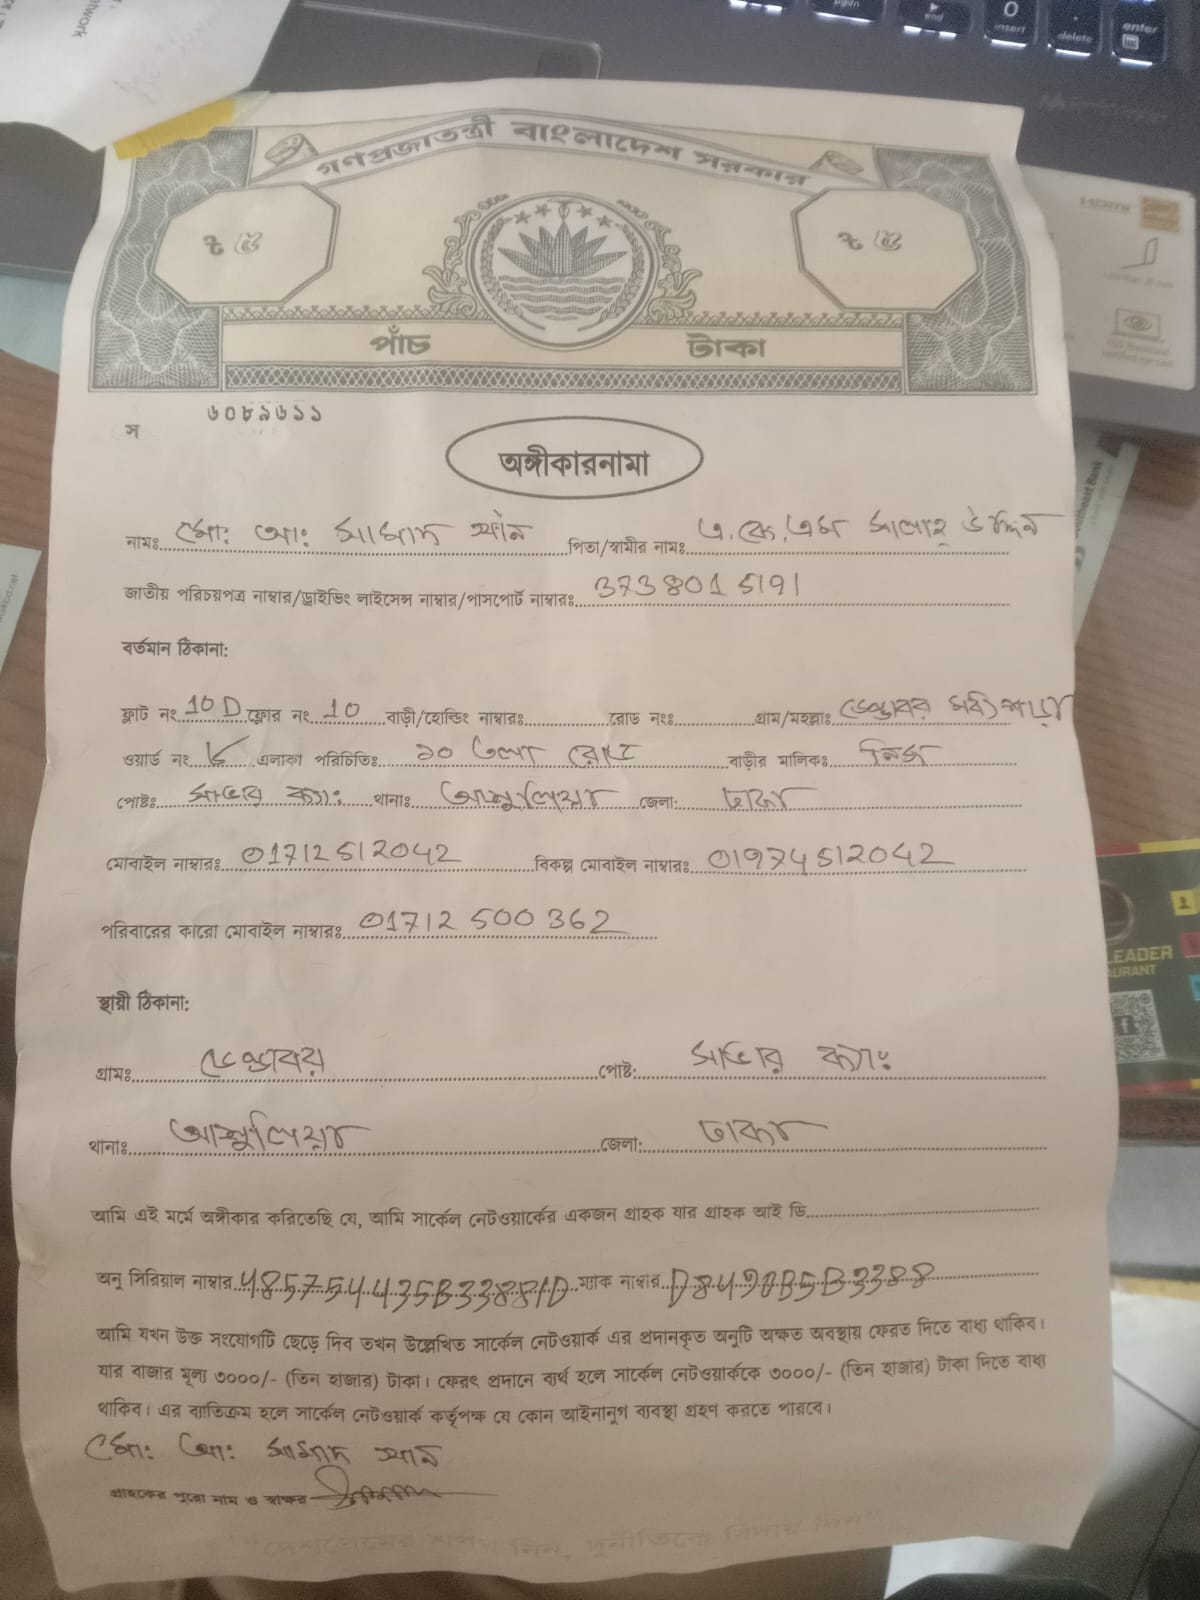 twork
pgdn
end
0
insert
.
delete
enter
গণপ্রজাতন্ত্রী বাংলাদেশ সরকার
ট ৫
ট ৫
পাঁচ টাকা
HDMI
৬০৮৯৬১১
স
অঙ্গীকারনামা
নামঃ মো: আ: সামাদ খাঁন পিতা/স্বামীর নামঃ এ.কে.এম সালাহ্ উদ্দিন
জাতীয় পরিচয়পত্র নাম্বার/ড্রাইভিং লাইসেন্স নাম্বার/পাসপোর্ট নাম্বারঃ 3738015191
বর্তমান ঠিকানা:
ফ্লাট নং 10 D ফ্লোর নং 10 বাড়ী/হোল্ডিং নাম্বারঃ রোড নংঃ গ্রাম/মহল্লাঃ ডেন্ডাবর মধ্যপাড়া
ওয়ার্ড নং এলাকা পরিচিতিঃ ১০ তলা রোড বাড়ীর মালিকঃ নিজ
পোষ্টঃ সাভার ক্যাঃ থানাঃ আশুলিয়া জেলা: ঢাকা
মোবাইল নাম্বারঃ 01712512042 বিকল্প মোবাইল নাম্বারঃ 01974512042
পরিবারের কারো মোবাইল নাম্বারঃ 01712 500 362
LEADER
URANT
স্থায়ী ঠিকানা:
গ্রামঃ ডেন্ডাবর পোষ্ট: সাভার ক্যাঃ
থানাঃ আশুলিয়া জেলা: ঢাকা
আমি এই মর্মে অঙ্গীকার করিতেছি যে, আমি সার্কেল নেটওয়ার্কের একজন গ্রাহক যার গ্রাহক আই ডি
অনু সিরিয়াল নাম্বার 485754435B33881D ম্যাক নাম্বার D8490B5B3388
আমি যখন উক্ত সংযোগটি ছেড়ে দিব তখন উল্লেখিত সার্কেল নেটওয়ার্ক এর প্রদানকৃত অনুটি অক্ষত অবস্থায় ফেরত দিতে বাধ্য থাকিব।
যার বাজার মূল্য ৩০০০/- (তিন হাজার) টাকা। ফেরৎ প্রদানে ব্যর্থ হলে সার্কেল নেটওয়ার্ককে ৩০০০/- (তিন হাজার) টাকা দিতে বাধ্য
থাকিব। এর ব্যতিক্রম হলে সার্কেল নেটওয়ার্ক কর্তৃপক্ষ যে কোন আইনানুগ ব্যবস্থা গ্রহণ করতে পারবে।
মো: আ: সামাদ খান
গ্রাহকের পুরো নাম ও স্বাক্ষর
"দেশপ্রেমের শপথ নিন, দুর্নীতিকে বিদায় দিন"